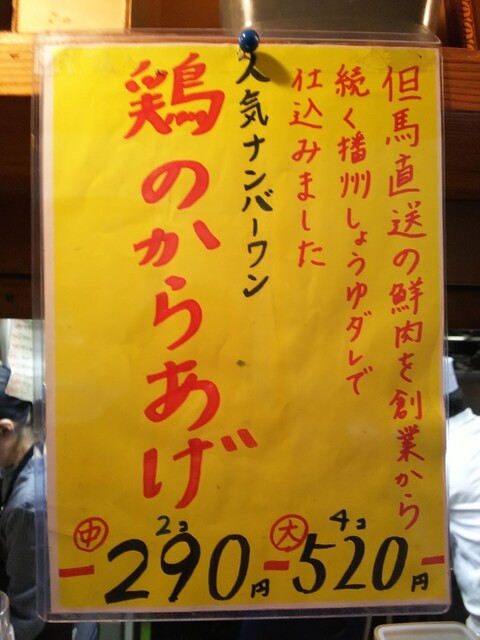 但馬直送の鮮肉を創業から
続く播州しょうゆダレで
仕込みました
人気ナンバーワン
鶏のからあげ
中 2コ 290円
大 4コ 520円